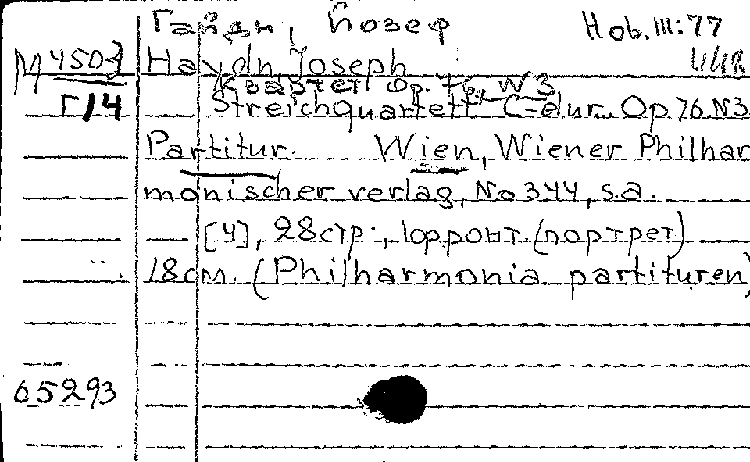 Гайдн, Йозеф Hob. III:77
М 4503 Haydn Joseph
Квартет Op. 76, N 3
Г/4 Streichquartett C-dur. Op. 76 N3
Partitur. Wien, Wiener Philhar
monischer verlag, No 344, s.a.
[4], 28 стр., 1 фронт. (портрет)
18 cm. (Philharmonia partituren)
65293